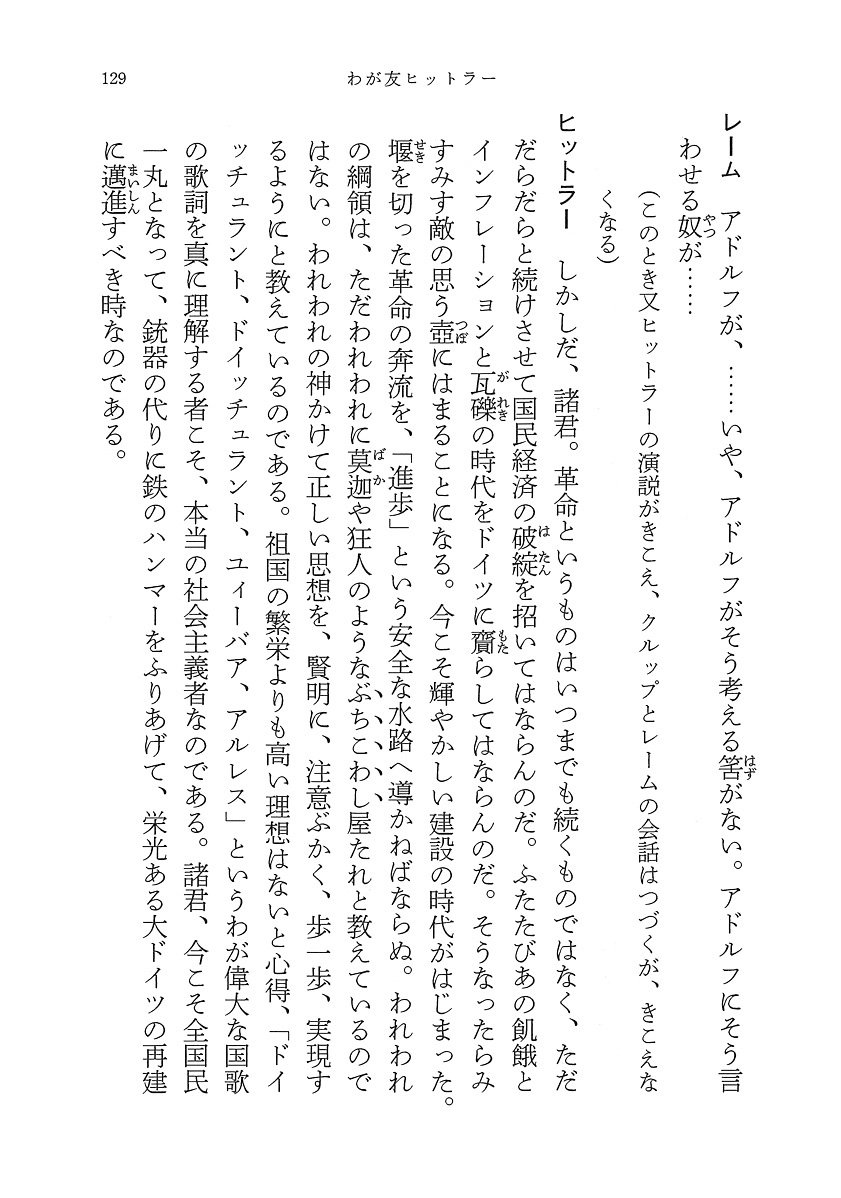 129
わが友ヒットラー
レーム　アドルフが、……いや、アドルフがそう考える筈がない。アドルフにそう言
わせる奴が……
（このとき又ヒットラーの演説がきこえ、クルップとレームの会話はつづくが、きこえな
くなる）
ヒットラー　しかしだ、諸君。革命というものはいつまでも続くものではなく、ただ
だらだらと続けさせて国民経済の破綻を招いてはならんのだ。ふたたびあの飢餓と
インフレーションと瓦礫の時代をドイツに齎らしてはならんのだ。そうなったらみ
すみす敵の思う壺にはまることになる。今こそ輝やかしい建設の時代がはじまった。
堰を切った革命の奔流を、「進歩」という安全な水路へ導かねばならぬ。われわれ
の綱領は、ただわれわれに莫迦や狂人のようなぶちこわし屋たれと教えているので
はない。われわれの神かけて正しい思想を、賢明に、注意ぶかく、歩一歩、実現す
るようにと教えているのである。祖国の繁栄よりも高い理想はないと心得、「ドイ
ッチュラント、ドイッチュラント、ユィーバア、アルレス」というわが偉大な国歌
の歌詞を真に理解する者こそ、本当の社会主義者なのである。諸君、今こそ全国民
一丸となって、銃器の代りに鉄のハンマーをふりあげて、栄光ある大ドイツの再建
に邁進すべき時なのである。